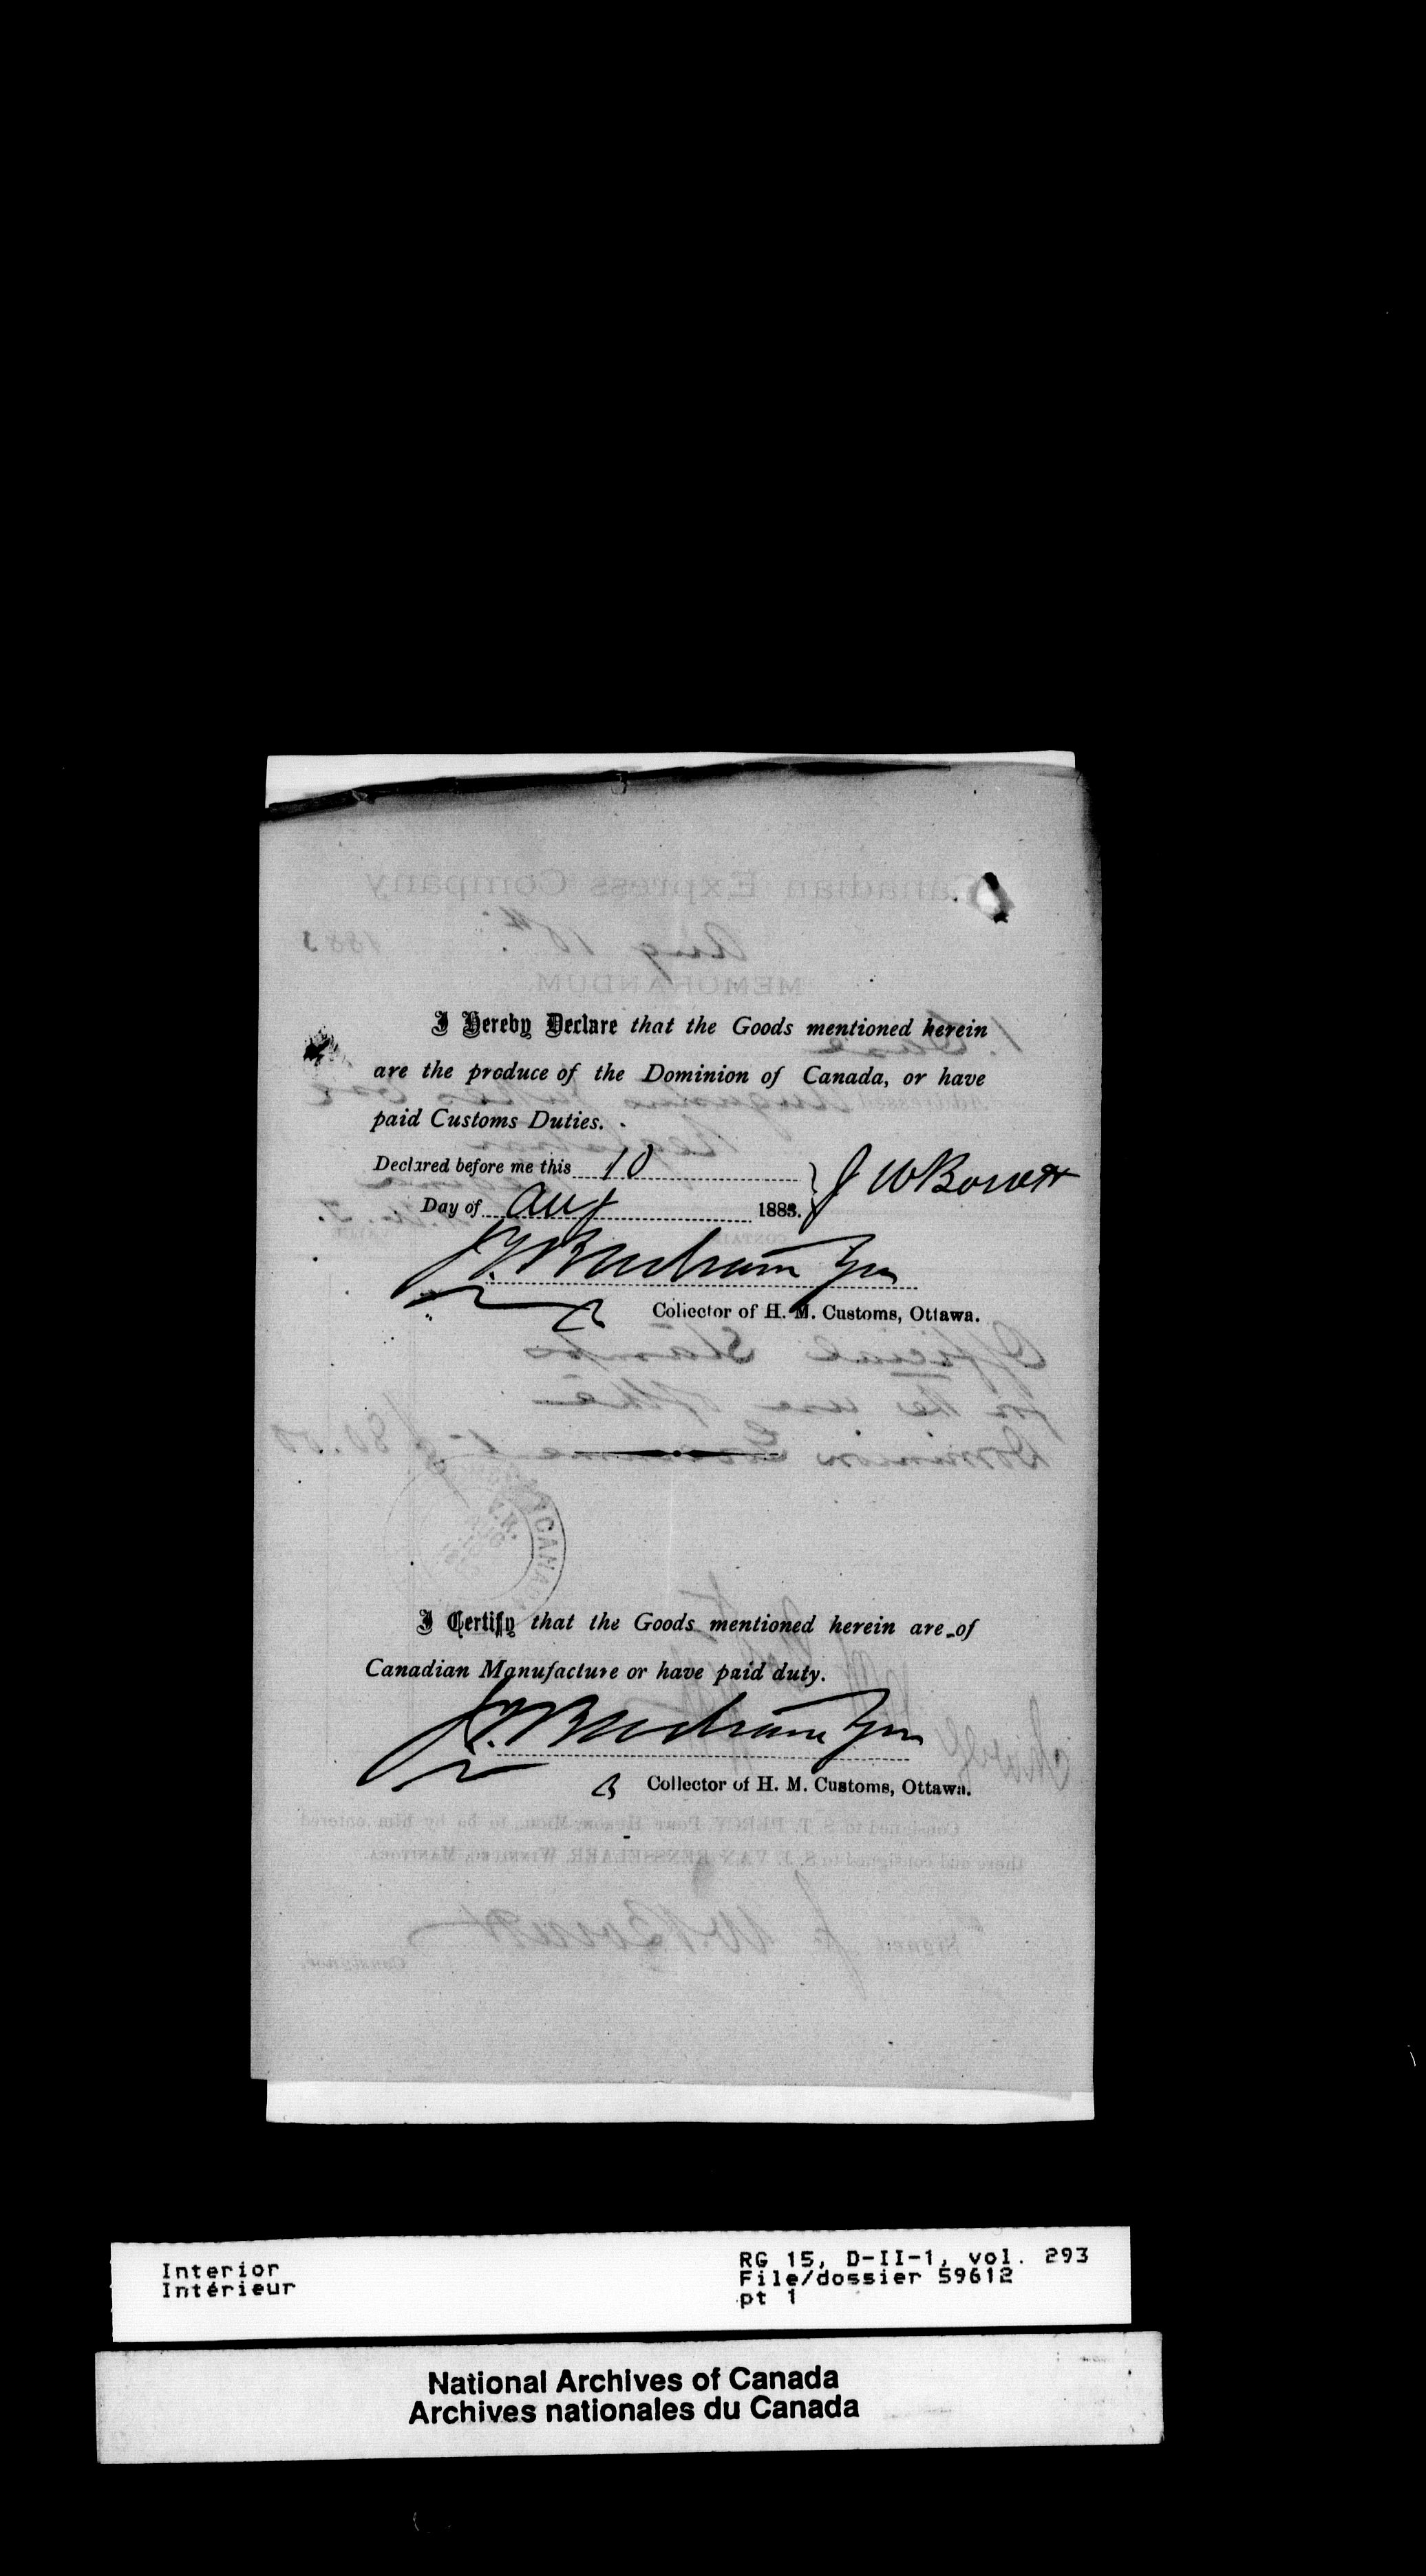 I Hereby Declare that the Goods mentioned herein
are the produce of the Dominion of Canada, or have
paid Customs Duties.
Declared before me this 10
Day of Aug 1883.
J W Bowett
Collector of H. M. Customs, Ottawa.
I Certify that the Goods mentioned herein are of
Canadian Manufacture or have paid duty.
Collector of H. M. Customs, Ottawa.
Interior
Intérieur
RG 15, D-II-1, vol. 293
File/dossier 59612
pt 1
National Archives of Canada
Archives nationales du Canada